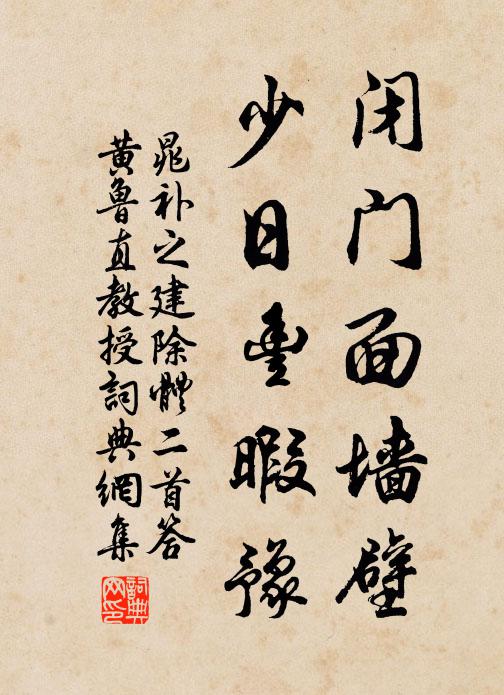 闭门面墙壁
少日豊暇豫
晁补之建除體二首答
黄魯直教授詞典網集
詞典网印